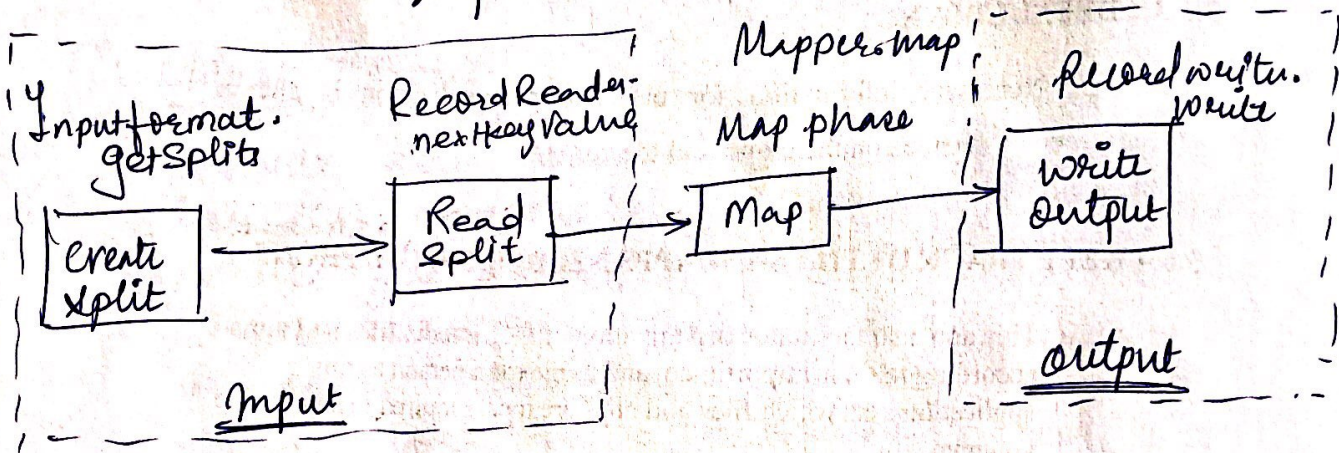 Inputformat.
getSplits
RecordReader.
nextKeyValue
Mapper.map
Map phase
Recordwriter.
write
Create
split
Read
split
Map
write
output
Input
output